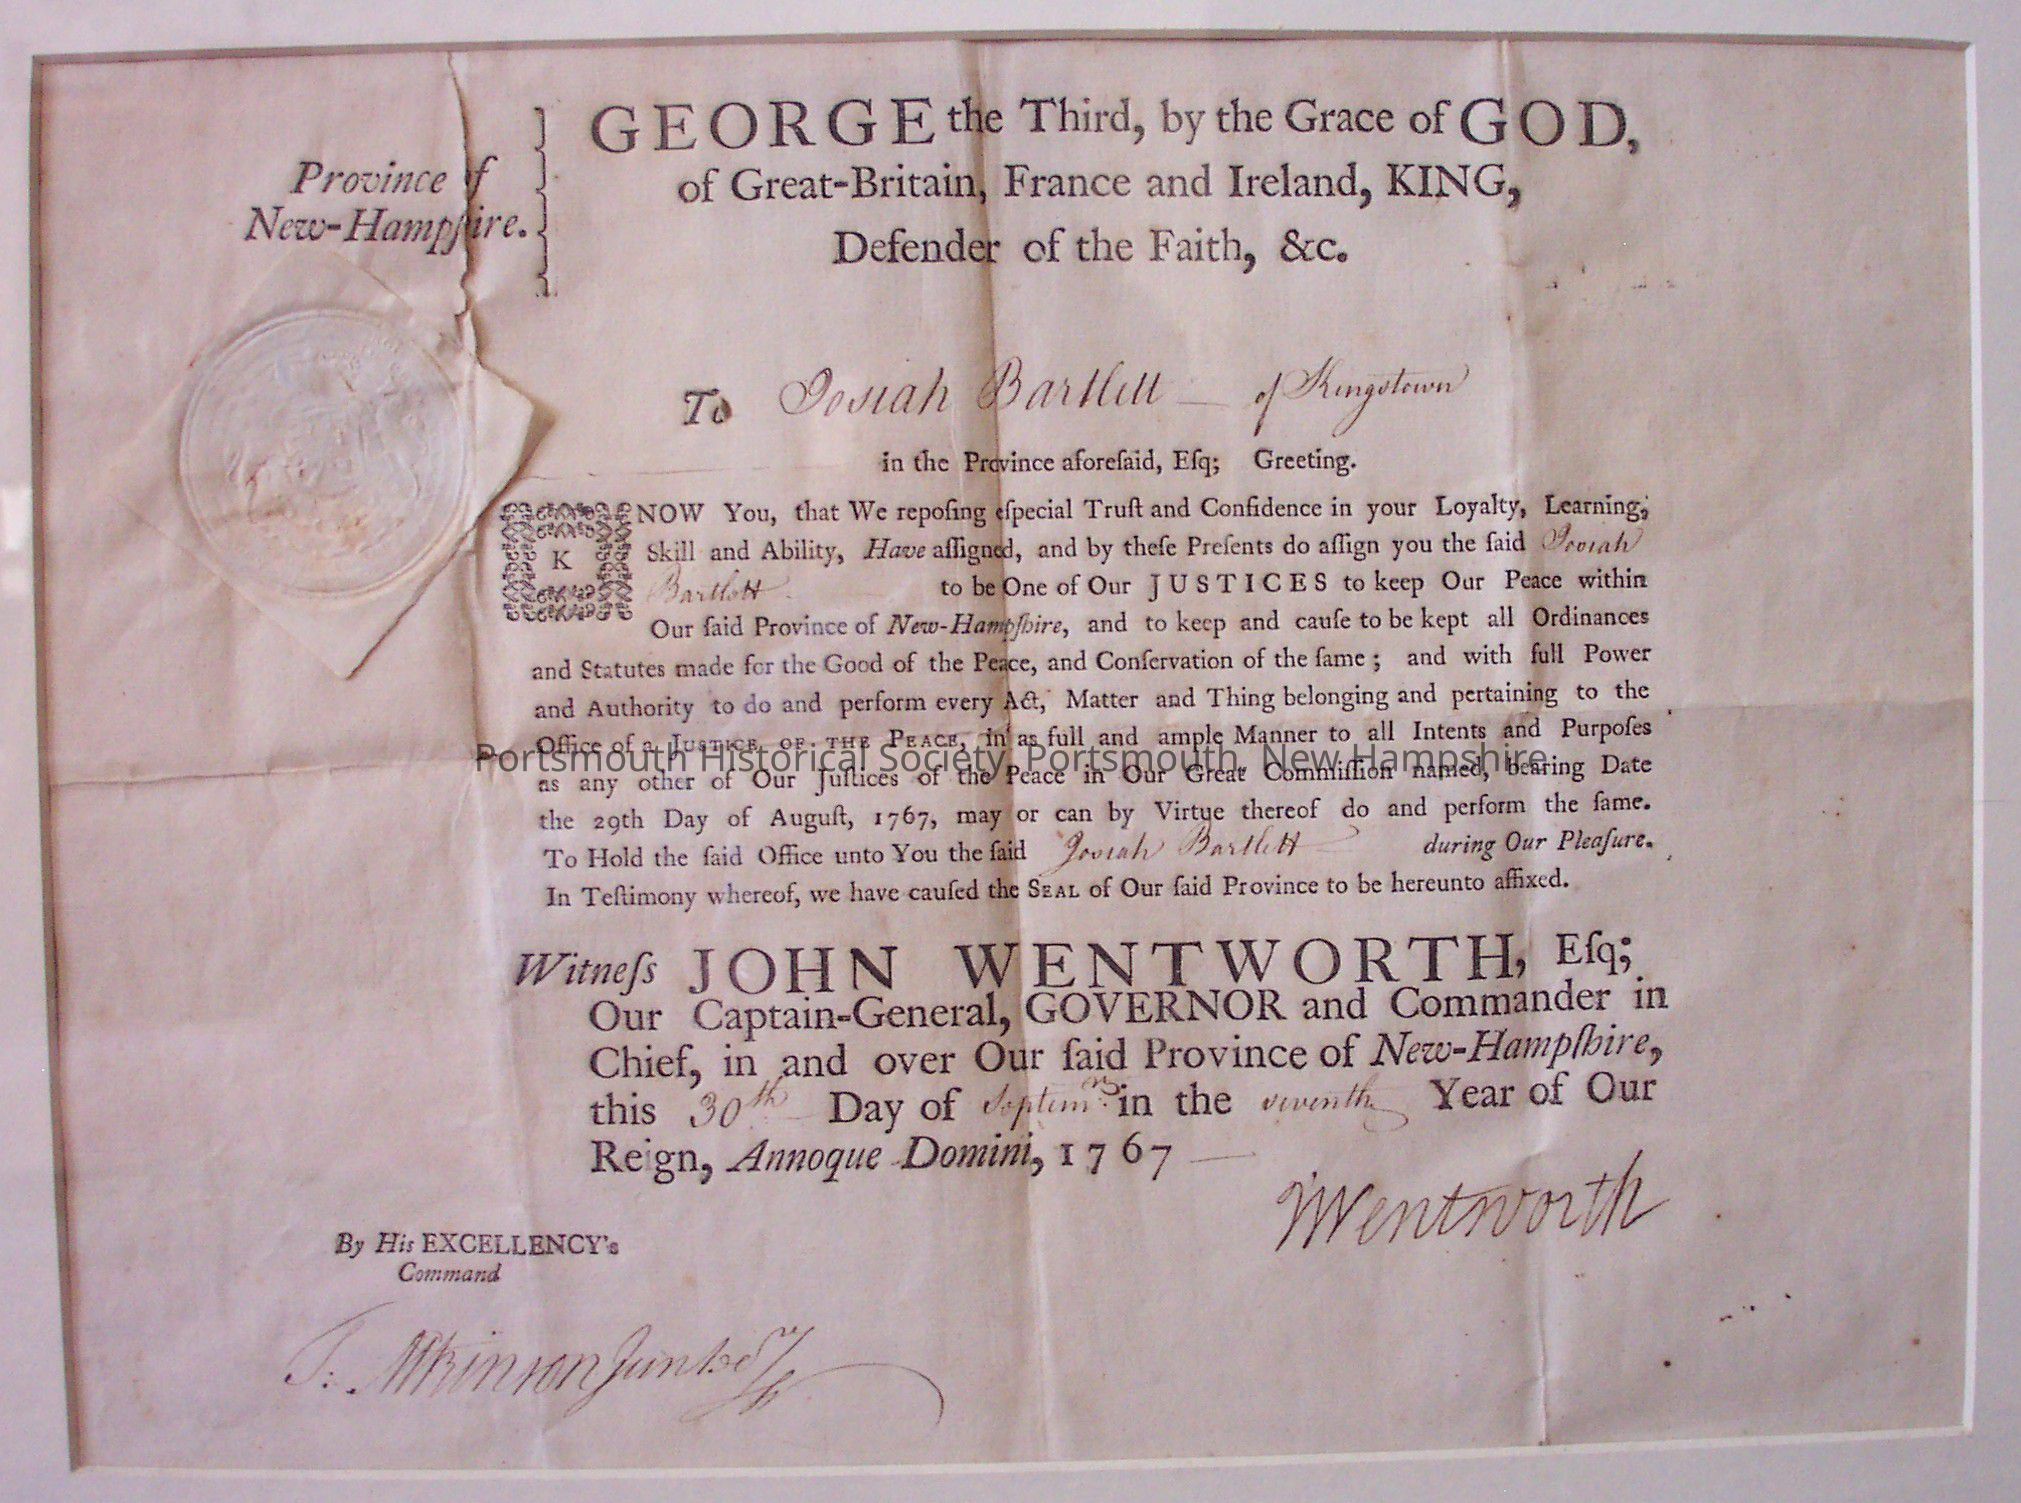 Province of
New-Hampſhire.
GEORGE the Third, by the Grace of GOD,
of Great-Britain, France and Ireland, KING,
Defender of the Faith, &c.
To Josiah Bartlett of Kingstown
in the Province aforeſaid, Eſq; Greeting.
KNOW You, that We repoſing eſpecial Truſt and Confidence in your Loyalty, Learning,
Skill and Ability, Have aſſigned, and by theſe Preſents do aſſign you the ſaid Josiah
Bartlett to be One of Our JUSTICES to keep Our Peace within
Our ſaid Province of New-Hampſhire, and to keep and cauſe to be kept all Ordinances
and Statutes made for the Good of the Peace, and Conſervation of the ſame; and with full Power
and Authority to do and perform every Act, Matter and Thing belonging and pertaining to the
Office of a JUSTICE OF THE PEACE, in as full and ample Manner to all Intents and Purpoſes
Portsmouth Historical Society, Portsmouth, New Hampshire
as any other of Our Juſtices of the Peace in Our Great Commiſſion named, bearing Date
the 29th Day of Auguſt, 1767, may or can by Virtue thereof do and perform the ſame.
To Hold the ſaid Office unto You the ſaid Josiah Bartlett during Our Pleaſure.
In Teſtimony whereof, we have cauſed the SEAL of Our ſaid Province to be hereunto affixed.
Witneſs JOHN WENTWORTH, Eſq;
Our Captain-General, GOVERNOR and Commander in
Chief, in and over Our ſaid Province of New-Hampſhire,
this 30th Day of Septemr in the seventh Year of Our
Reign, Annoque Domini, 1767
Wentworth
By His EXCELLENCY's
Command
T. Atkinson Jun